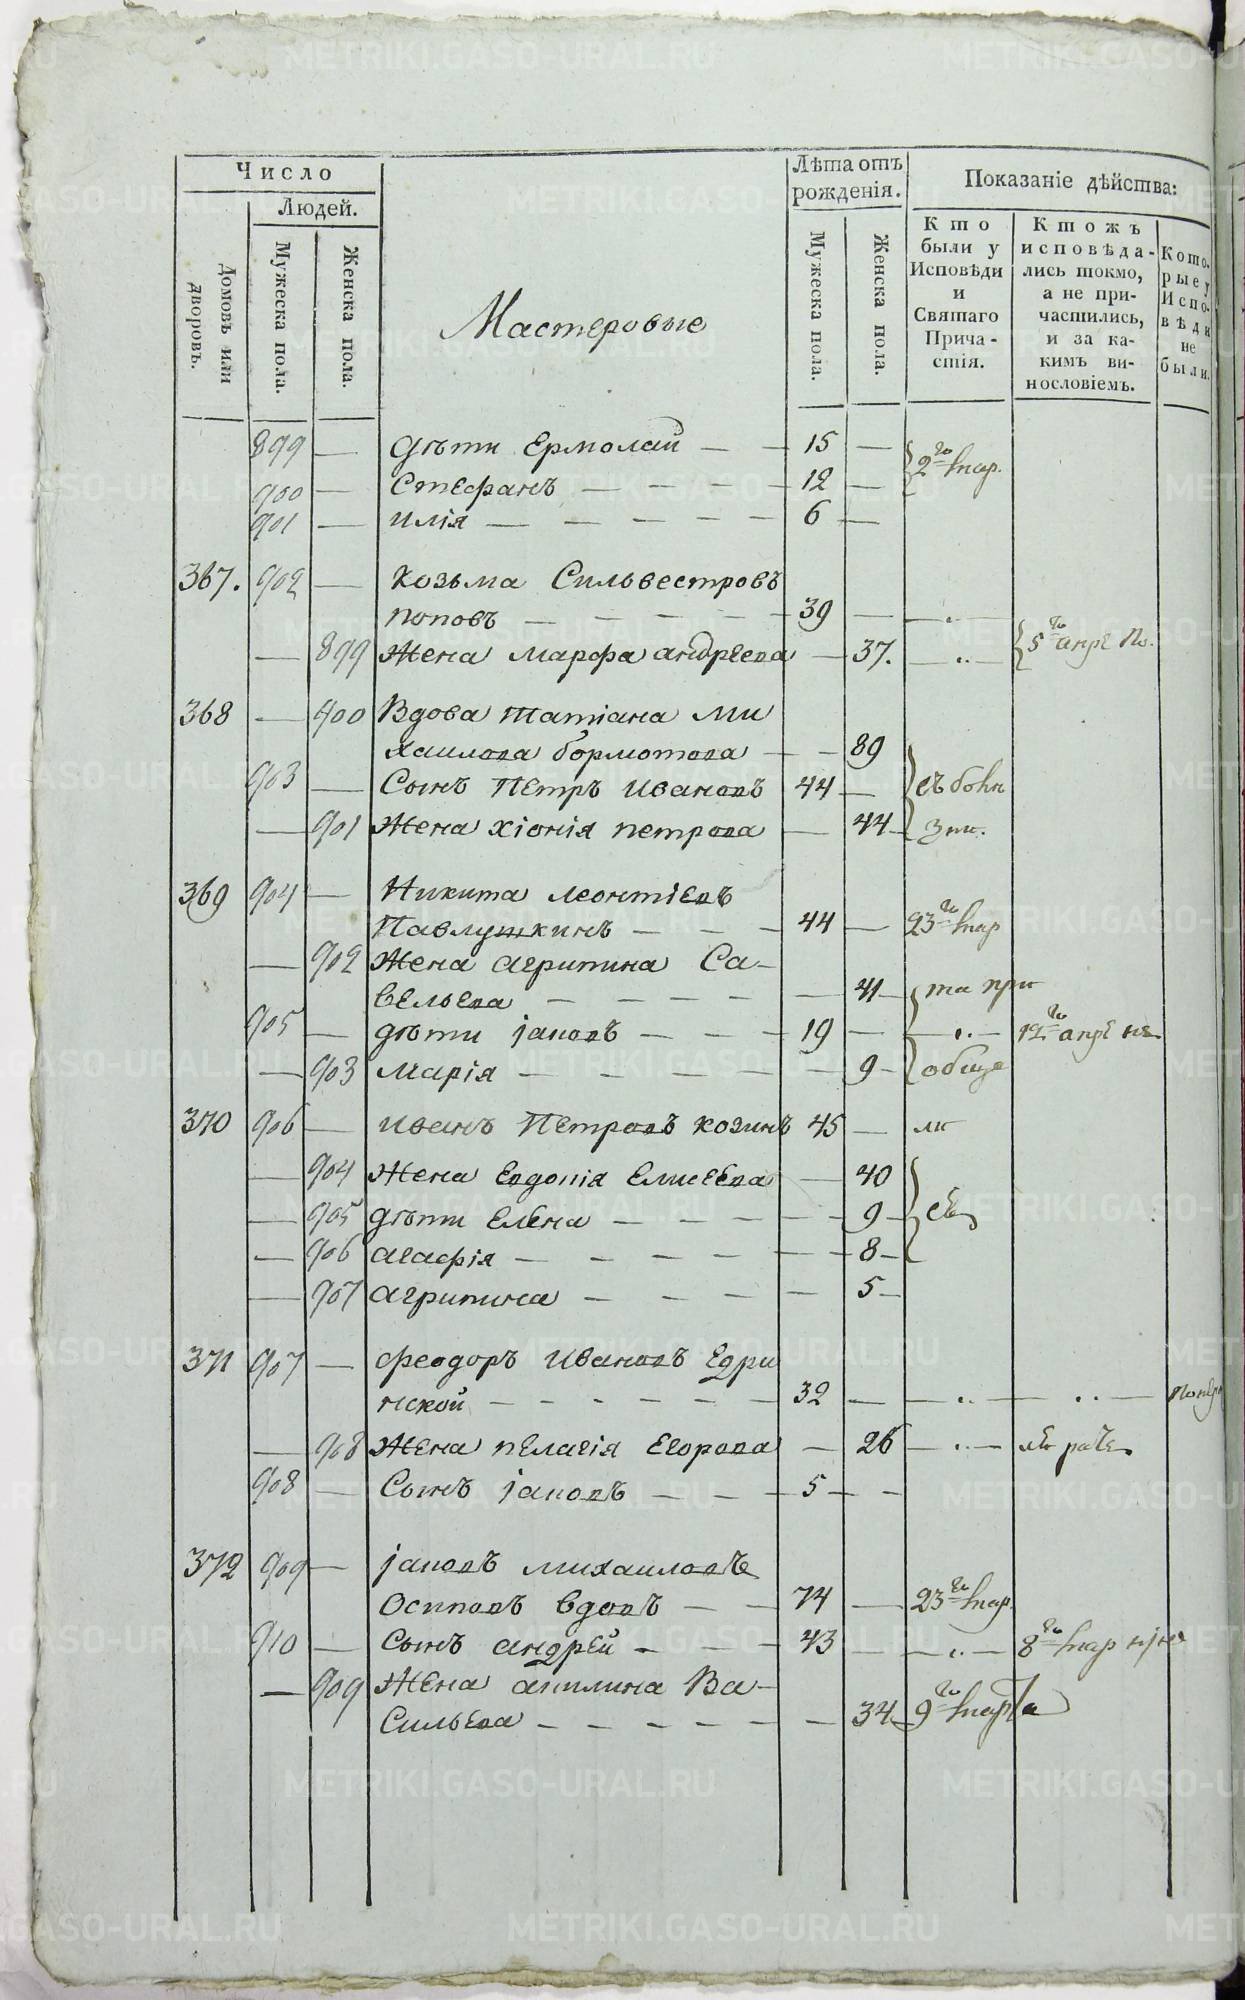 Число
Людей.
Домовъ или дворовъ.
Мужеска пола.
Женска пола.
Мастеровые
Лѣта отъ рожденія.
Мужеска пола.
Женска пола.
Показаніе дѣйства:
Кто были у Исповѣди и Святаго Прича-стія.
Ктожъ исповѣда-лись токмо, а не при-частились, и за ка-кимъ ви-нословіемъ.
Кото-рые у Испо-вѣди не были.
899 — дѣти Ермолай — — 15 —
900 — Стефанъ — — — — 12 — 2го мар.
901 — илія — — — — — 6 —
367. 902 — Козьма Сильвестровъ
поповъ — — — — — 39 — — „ —
— 899 Жена Марфа андреева — 37. — „ — 5го апре
368 — 900 Вдова татіана Ми
хаилова бормотова — — 89
903 — Сынъ Петръ Ивановъ 44 —
— 901 Жена хіонія петрова — 44 —
369 904 — Никита леонтіевъ
Павлушкинъ — — — 44 — 23го мар
— 902 Жена агрипина Са-
вельева — — — — — — 41 — та при
905 — дѣти іаковъ — — — 19 — — „ — 12го апре не
— 903 Марія — — — — — — 9 — обще
370 906 — иванъ Петровъ козинъ 45 — ли
— 904 Жена Евдокія Елисеева — 40
— 905 дѣти Елена — — — — — 9 —
— 906 агафія — — — — — — 8 —
— 907 агрипина — — — — — 5 —
371 907 — феодоръ Ивановъ Едри
нской — — — — — — 32 — — „ — — „ —
— 908 Жена пелагія Егорова — 26 — „ —
908 — Сынъ іаковъ — — — 5 — —
372 909 — іаковъ михаиловъ
Осиповъ вдовъ — — 74 — 23го мар.
910 — Сынъ андрей — — — 43 — — „ — 8го мар
— 909 Жена акилина Ва-
сильева — — — — — — 34 — 9го марта
METRIKI.GASO-URAL.RU